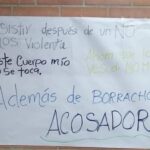 sistir después de un NO
nos Violenta
este Cuerpo es mío
No se toca.
Además de BORRACHO
ACOSADOR